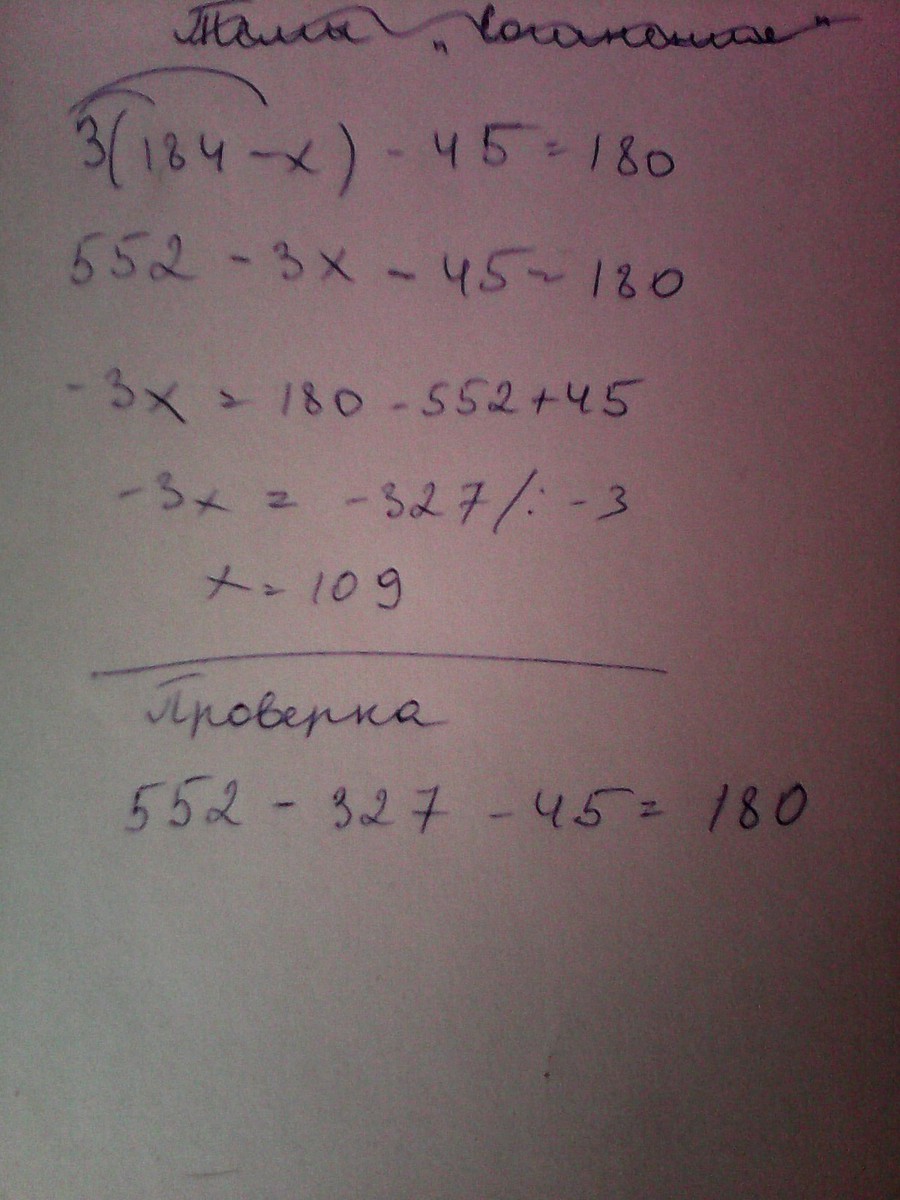 3(184 - x) - 45 = 180
552 - 3x - 45 = 180
-3x = 180 - 552 + 45
-3x = -327 /: -3
x = 109
Проверка
552 - 327 - 45 = 180